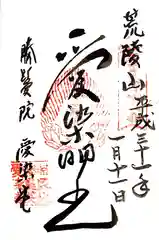 荒陵山
平成三十一年
一月十一日
愛染明王
勝鬘院
愛染堂